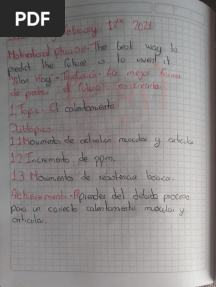 PDF
February 17th 2021
Motivational phrase: The best way to
predict the future is to invent it
Alan Kay - Traducción: La mejor forma
de predecir el futuro es
1. Topic: El calentamiento
Subtopics:
1.1 Movimiento de activación muscular y articular
1.2 Incremento de ppm.
1.3 Movimientos de resistencia básica.
Achievements: Aprender del debido proceso
para un correcto calentamiento muscular y
articular.